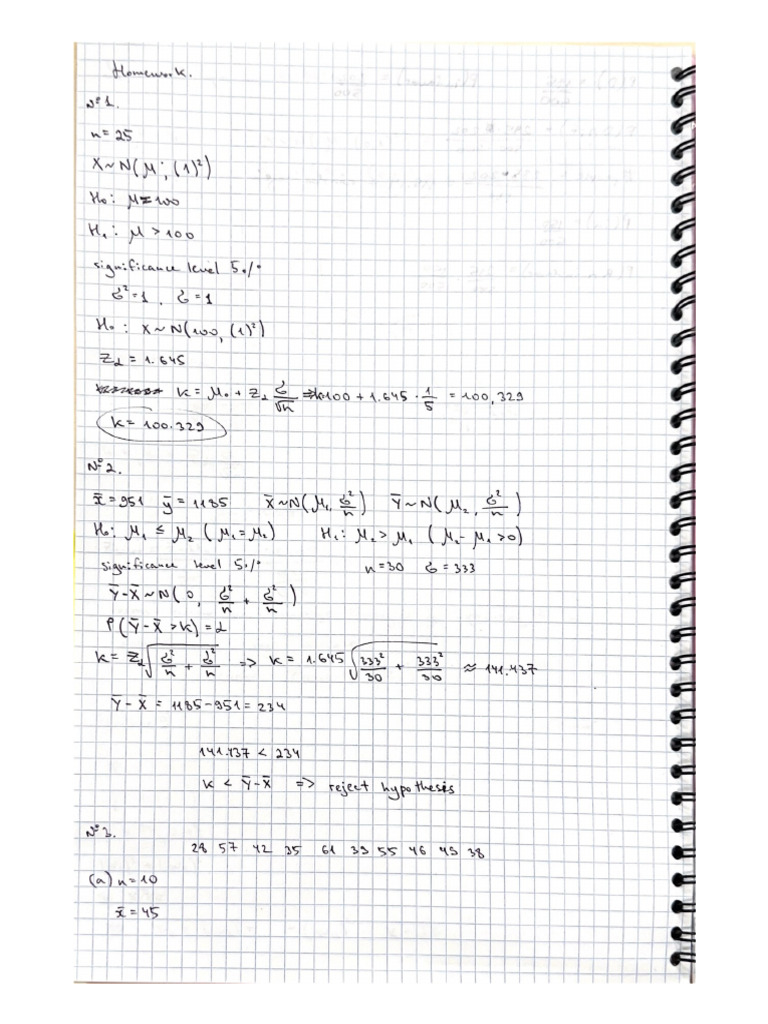 Homework.
№1.
n = 25
X~N(μ; (1)²)
H₀: μ = 100
H₁: μ > 100
significance level 5%
σ² = 1, σ = 1
H₀: X~N(100, (1)²)
Z_α = 1.645
k = μ₀ + Z_α σ/√n => 100 + 1.645 · 1/5 = 100,329
k = 100.329
№2.
x̄ = 951 ȳ = 1185 X̄~N(μ₁, σ²/n) Ȳ~N(μ₂, σ²/n)
H₀: μ₁ ≤ μ₂ (μ₁ = μ₂) H₁: μ₂ > μ₁ (μ₂ - μ₁ > 0)
significance level 5% n = 30 σ = 333
Ȳ-X̄~N(0, σ²/n + σ²/n)
P(Ȳ-X̄ > k) = α
k = Z_α √(σ²/n + σ²/n) => k = 1.645 √(333²/30 + 333²/30) ≈ 141.437
Ȳ - X̄ = 1185 - 951 = 234
141.437 < 234
k < Ȳ - X̄ => reject hypothesis
№3.
28 57 42 35 61 39 55 46 49 38
(a) n = 10
x̄ = 45